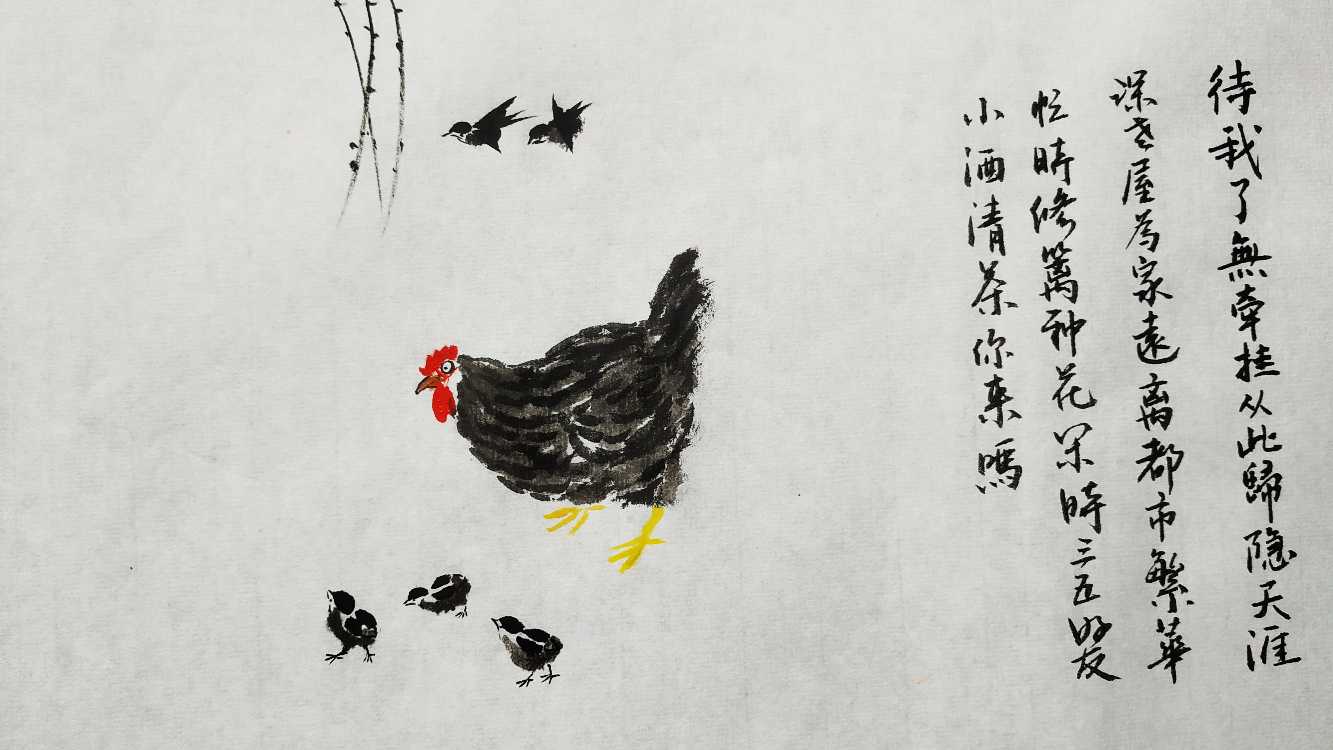 待我了無牽挂从此歸隐天涯
深老屋為家遠离都市繁華
忙時修篱种花閑時三五好友
小酒清茶你来嗎